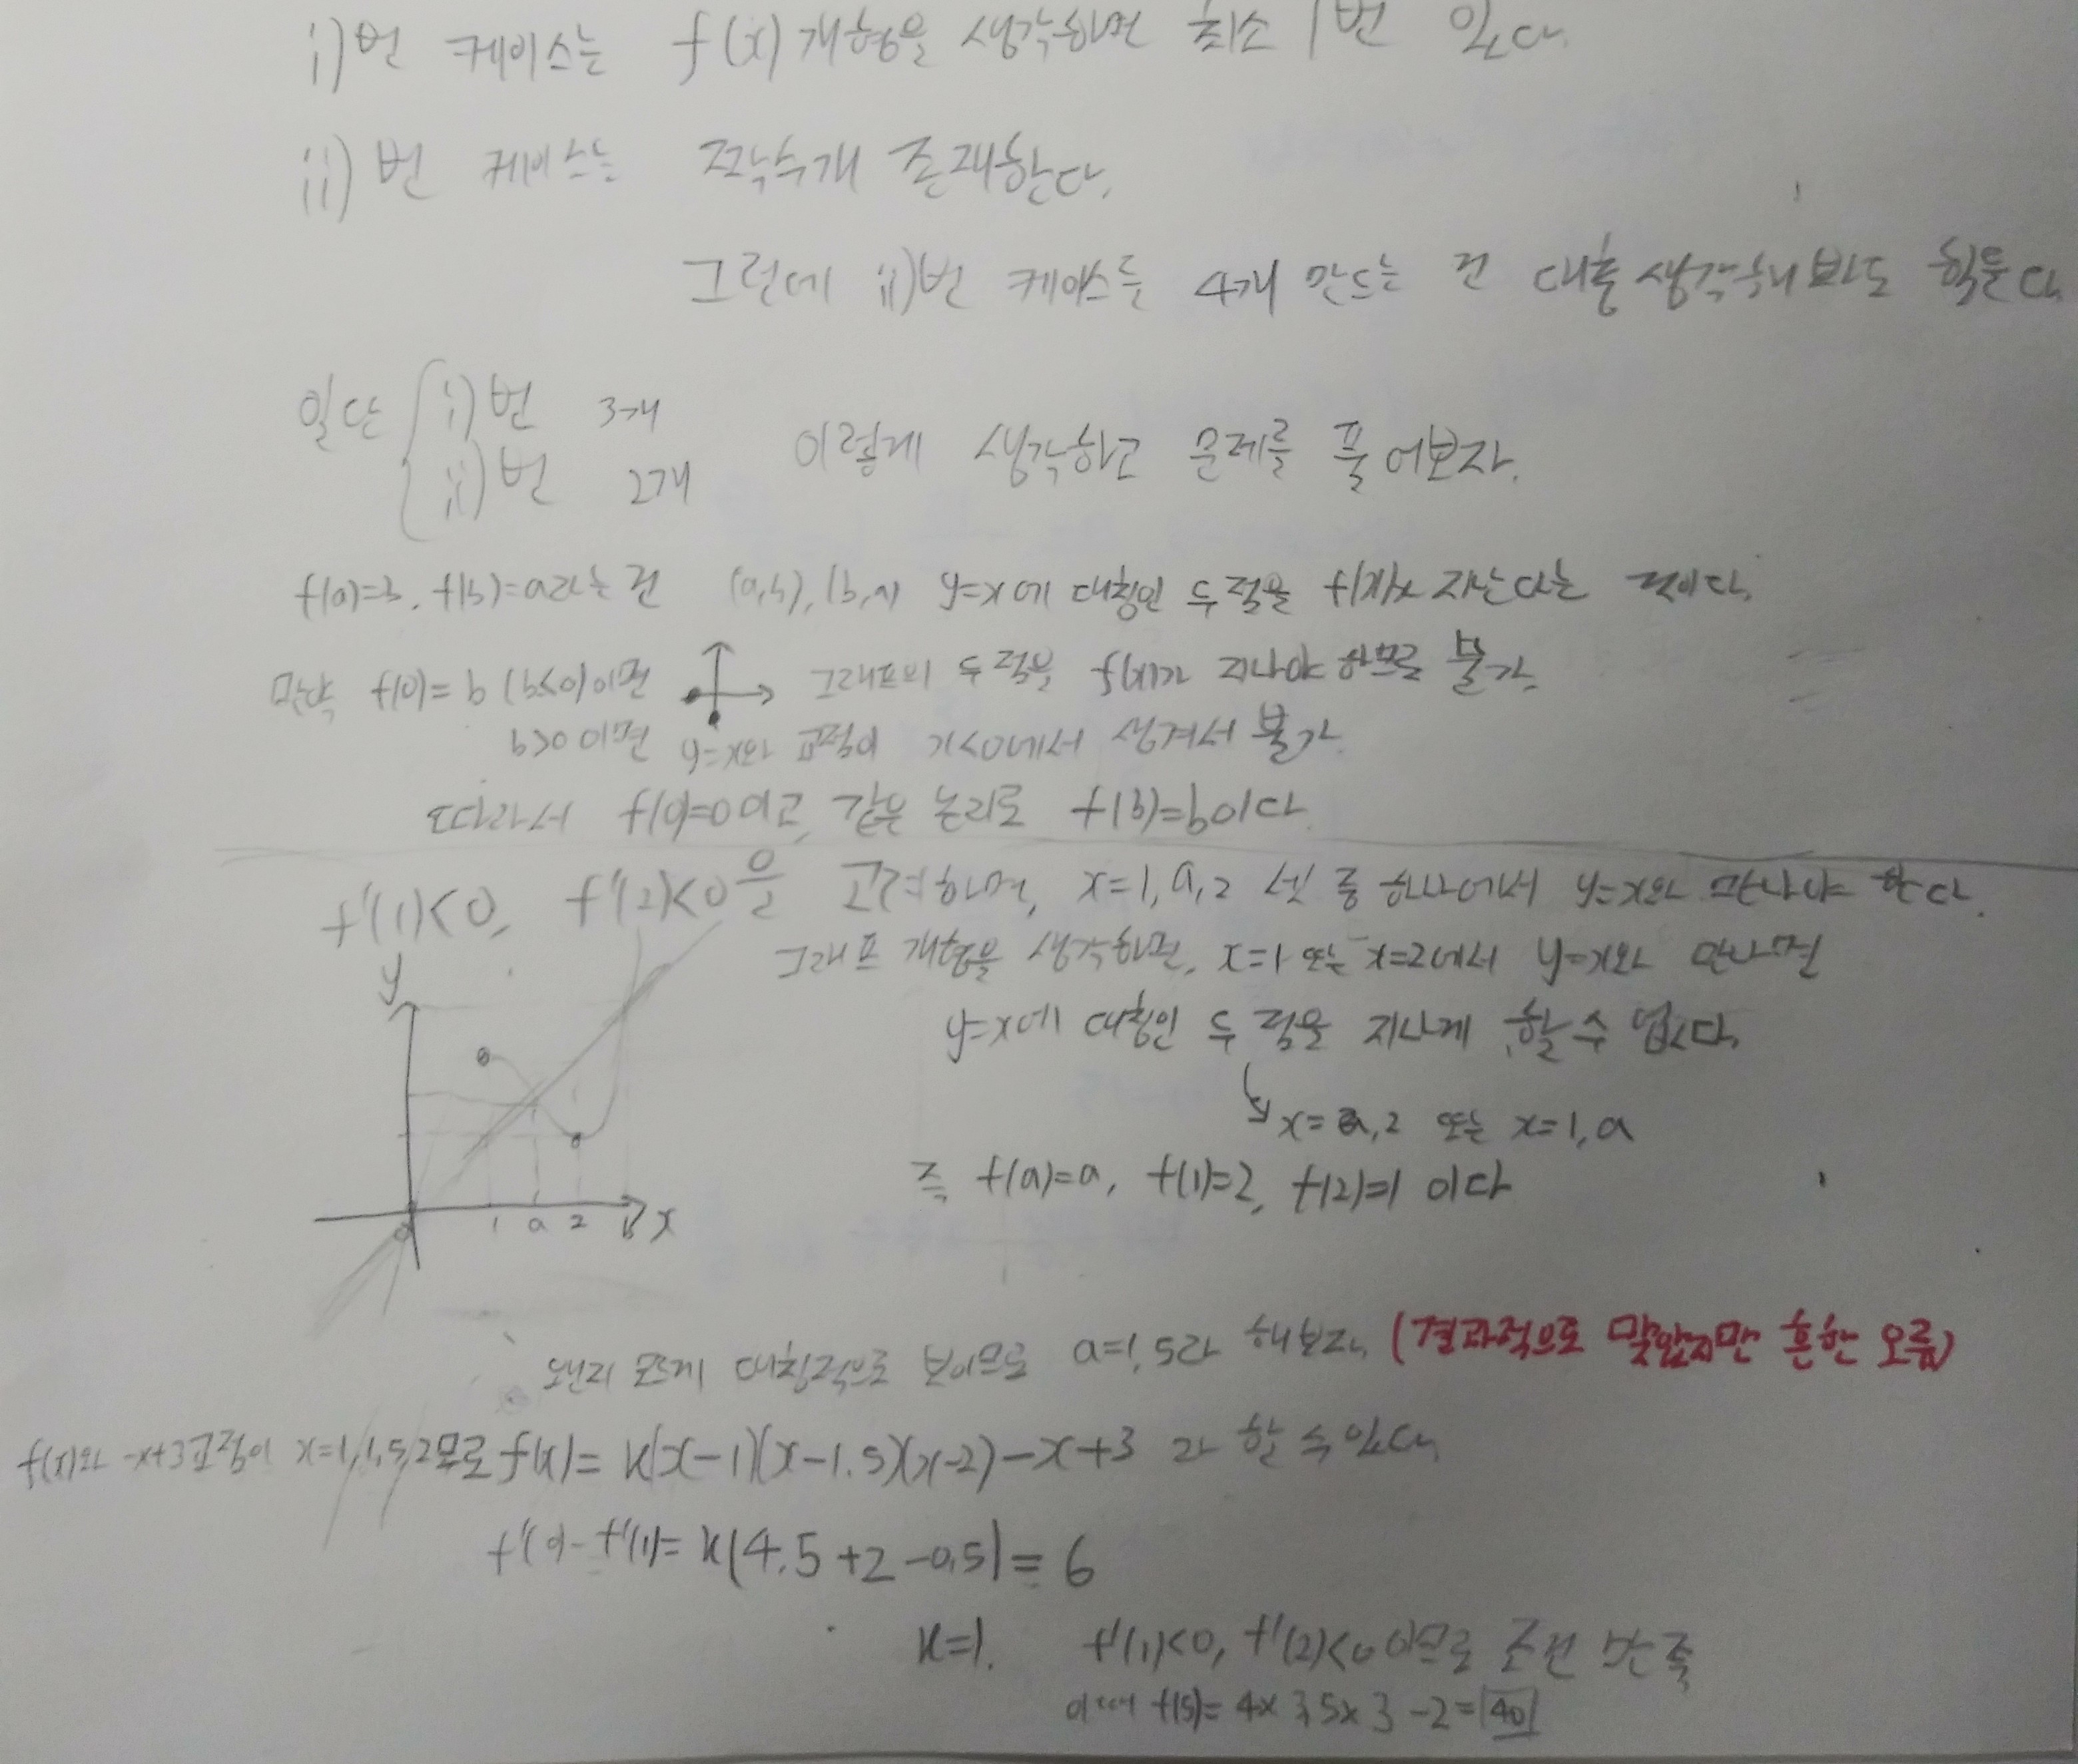 i)번 케이스는 f(x)개형을 생각하면 최소 1번 있다.
ii)번 케이스는 짝수개 존재한다.
그런데 ii)번 케이스를 4개 만드는 건 대충 생각해봐도 힘들다.
일단 { i)번 3개
ii)번 2개
이렇게 생각하고 문제를 풀어보자.
f(a)=b, f(b)=a라는 건 (a,b), (b,a) y=x에 대칭인 두 점을 f(x)가 지난다는 것이다.
만약 f(0)=b (b<0)이면 그래프의 두 점을 f(x)가 지나야 하므로 불가.
b>0이면 y=x와 교점이 x<0에서 생겨서 불가.
따라서 f(0)=0이고, 같은 논리로 f(b)=b이다.
f'(1)<0, f'(2)<0을 고려하면, x=1, a, 2 셋 중 하나에서 y=x와 만나야 한다.
그래프 개형을 생각하면, x=1 또는 x=2에서 y=x와 만나면
y=x에 대칭인 두 점을 지나게 할 수 없다.
x=a,2 또는 x=1,a
즉 f(a)=a, f(1)=2, f(2)=1 이다
y
0 1 a 2 b x
왠지 모르게 대칭적으로 보이므로 a=1.5라 해보자. (결과적으로 맞았지만 흔한 오류)
f(x)와 -x+3교점이 x=1,1.5,2므로 f(x)=k(x-1)(x-1.5)(x-2)-x+3 라 할 수 있다.
f'(0)-f'(1)=k(4.5+2-0.5)=6
k=1. f'(1)<0, f'(2)<0이므로 조건 만족
이때 f(5)=4×3.5×3-2=40